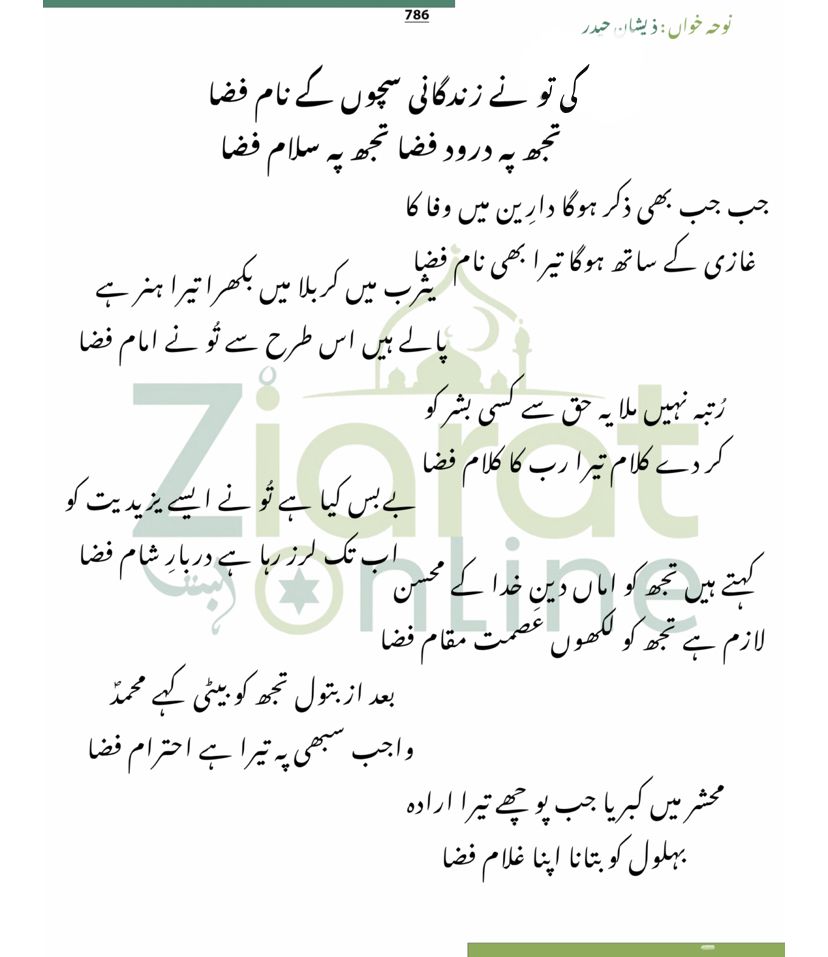 786
نوحہ خواں : ذیشان حیدر
کی تو نے زندگانی سچوں کے نام فضا
تجھ پہ درود فضا تجھ پہ سلام فضا
جب جب بھی ذکر ہوگا دارِین میں وفا کا
غازی کے ساتھ ہوگا تیرا بھی نام فضا
یثرب میں کربلا میں بکھرا تیرا ہنر ہے
پالے ہیں اس طرح سے تُو نے امام فضا
رُتبہ نہیں ملا یہ حق سے کسی بشر کو
کر دے کلام تیرا رب کا کلام فضا
بے بس کیا ہے تُو نے ایسے یزیدیت کو
اب تک لرز رہا ہے دربارِ شام فضا
کہتے ہیں تجھ کو اماں دینِ خدا کے محسن
لازم ہے تجھ کو لکھوں عصمت مقام فضا
بعد از بتول تجھ کو بیٹی کہے محمدؐ
واجب سبھی پہ تیرا ہے احترام فضا
محشر میں کبریا جب پوچھے تیرا ارادہ
بہلول کو بتانا اپنا غلام فضا
Ziarat
OnLine